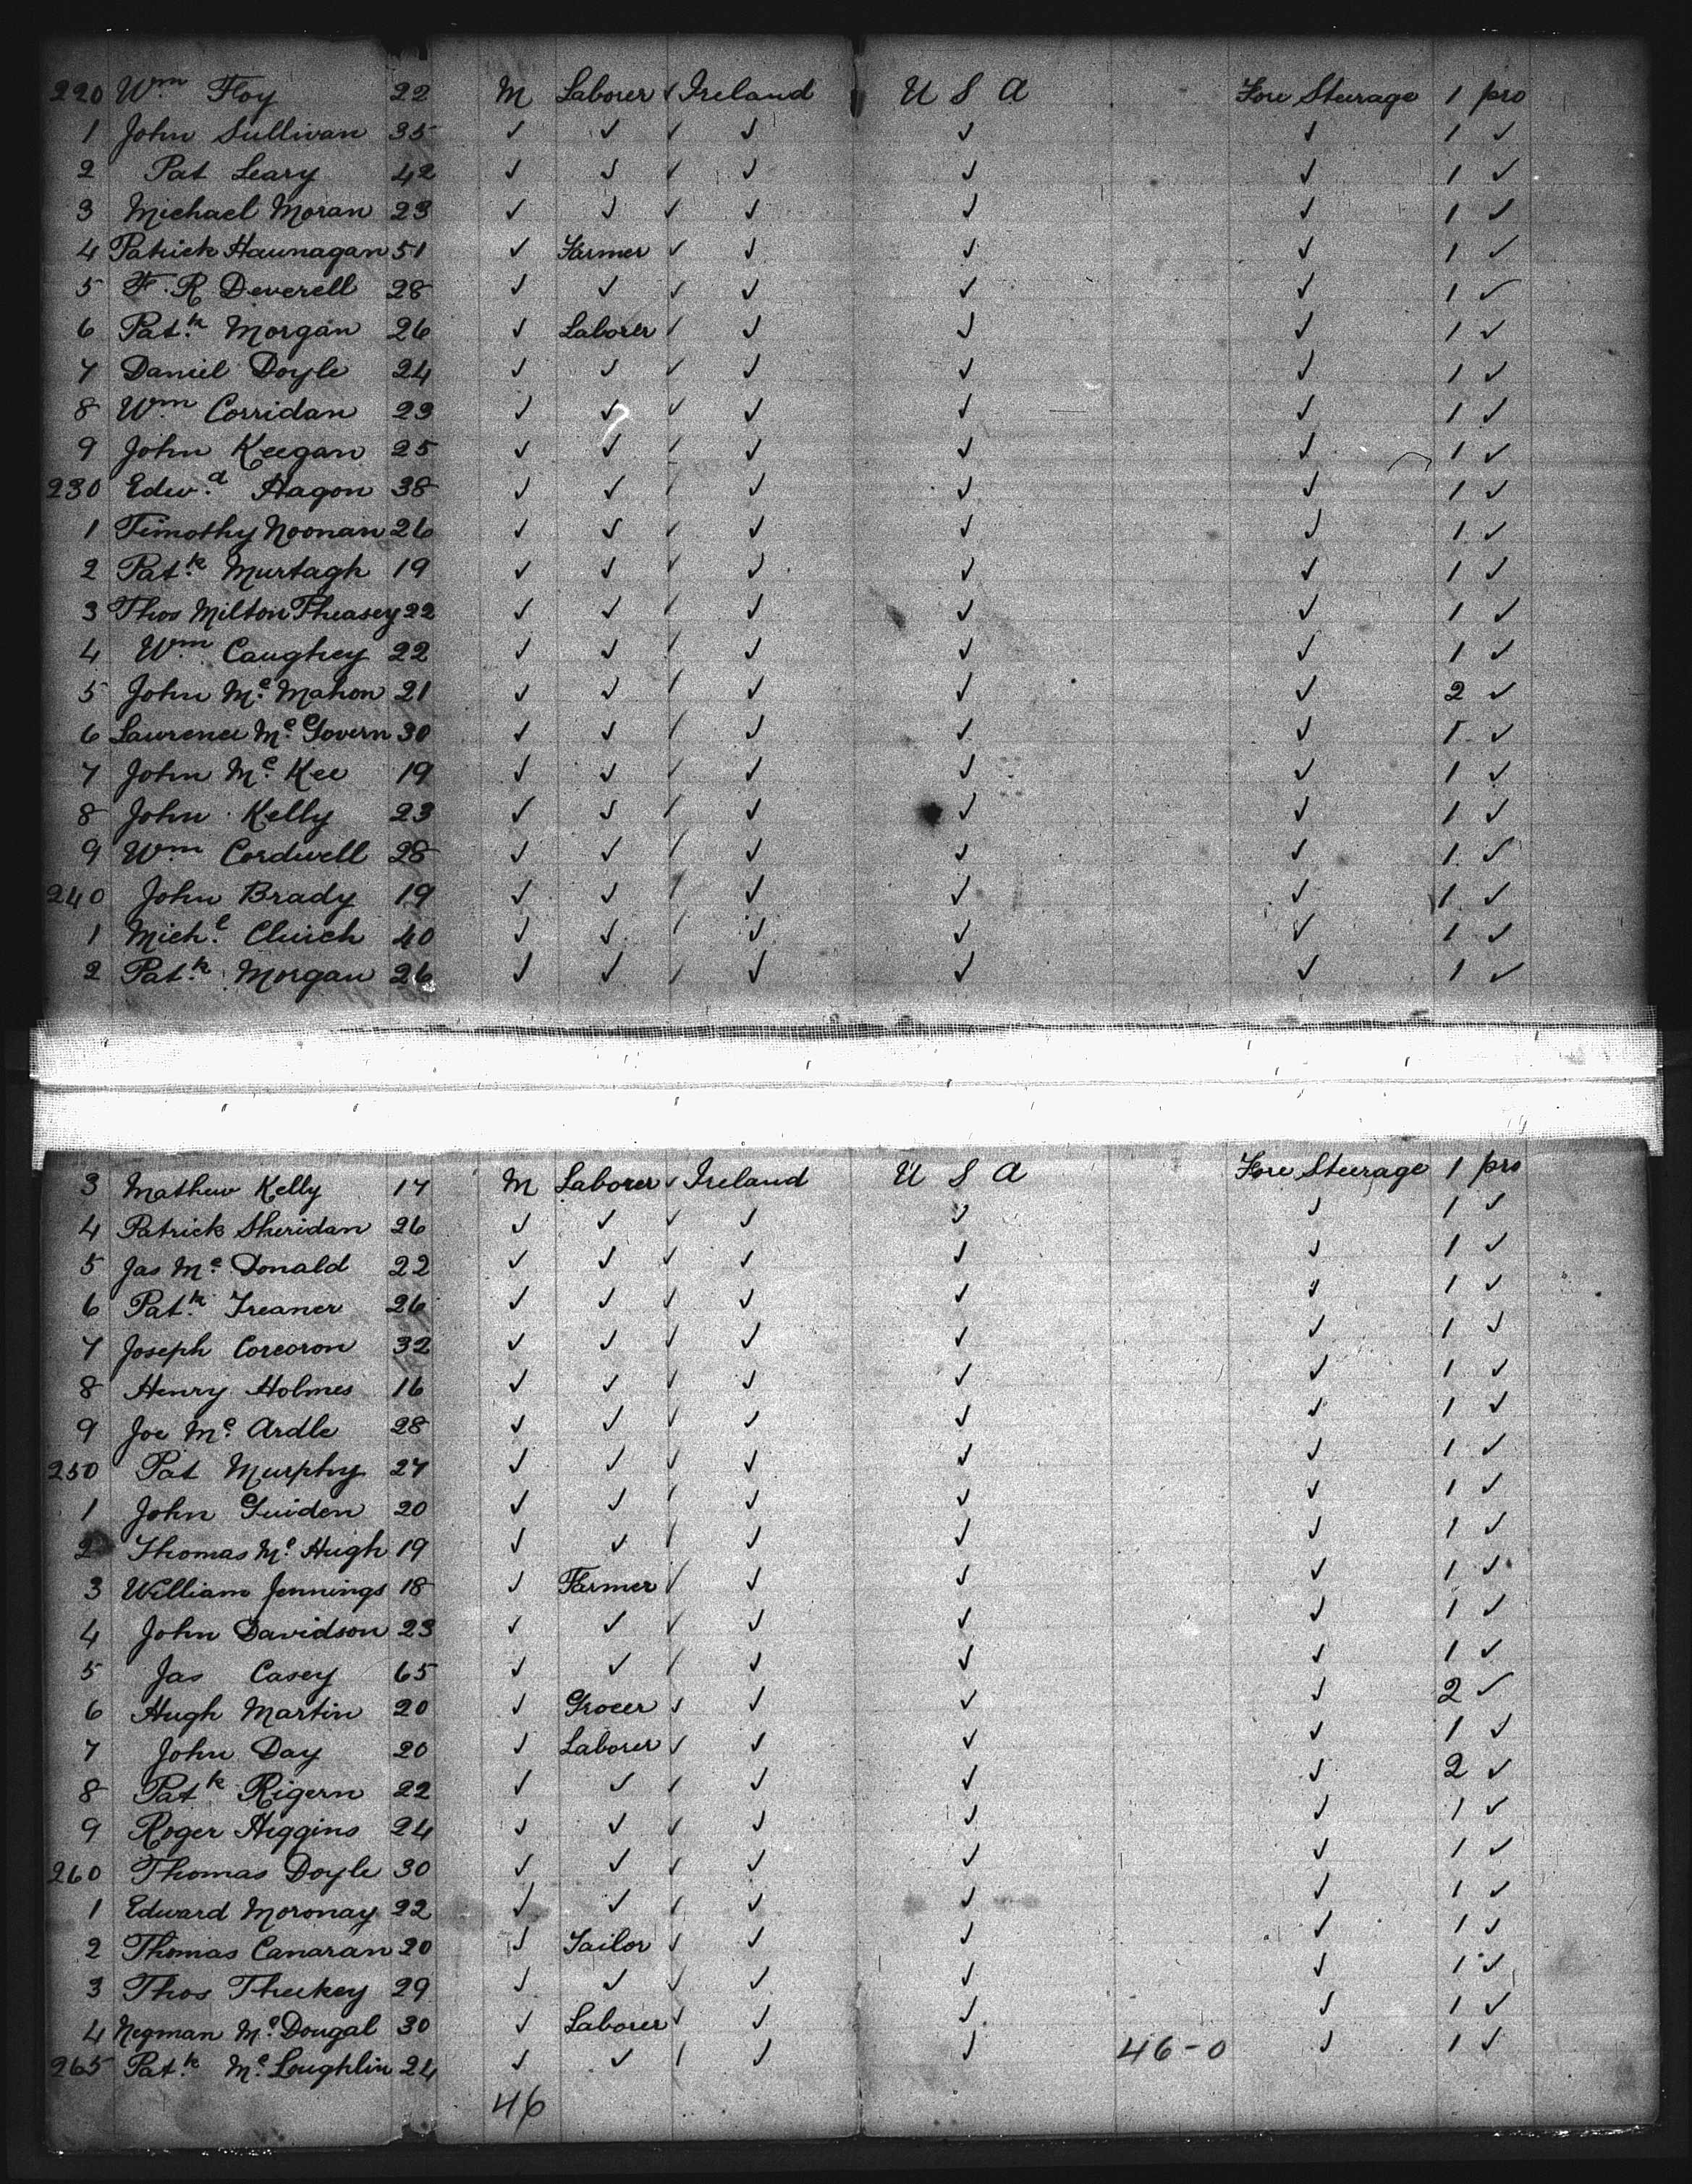 220 Wm Foy 22 M Laborer ✓ Ireland U S A Fore Steerage 1 pro
1 John Sullivan 35 ✓ ✓ ✓ ✓ ✓ ✓ 1 ✓
2 Pat Leary 42 ✓ ✓ ✓ ✓ ✓ ✓ 1 ✓
3 Michael Moran 23 ✓ ✓ ✓ ✓ ✓ ✓ 1 ✓
4 Patrick Haunagan 51 ✓ Farmer ✓ ✓ ✓ ✓ 1 ✓
5 F. R. Deverell 28 ✓ ✓ ✓ ✓ ✓ ✓ 1 ✓
6 Patk Morgan 26 ✓ Laborer ✓ ✓ ✓ ✓ 1 ✓
7 Daniel Doyle 24 ✓ ✓ ✓ ✓ ✓ ✓ 1 ✓
8 Wm Corridan 23 ✓ ✓ ✓ ✓ ✓ ✓ 1 ✓
9 John Keegan 25 ✓ ✓ ✓ ✓ ✓ ✓ 1 ✓
230 Edwd Hagon 38 ✓ ✓ ✓ ✓ ✓ ✓ 1 ✓
1 Timothy Noonan 26 ✓ ✓ ✓ ✓ ✓ ✓ 1 ✓
2 Patk Murtagh 19 ✓ ✓ ✓ ✓ ✓ ✓ 1 ✓
3 Thos Milton Pheasey 22 ✓ ✓ ✓ ✓ ✓ ✓ 1 ✓
4 Wm Caughey 22 ✓ ✓ ✓ ✓ ✓ ✓ 1 ✓
5 John Mc Mahon 21 ✓ ✓ ✓ ✓ ✓ ✓ 2 ✓
6 Lawrence Mc Govern 30 ✓ ✓ ✓ ✓ ✓ ✓ 1 ✓
7 John Mc Kee 19 ✓ ✓ ✓ ✓ ✓ ✓ 1 ✓
8 John Kelly 23 ✓ ✓ ✓ ✓ ✓ ✓ 1 ✓
9 Wm Cordwell 28 ✓ ✓ ✓ ✓ ✓ ✓ 1 ✓
240 John Brady 19 ✓ ✓ ✓ ✓ ✓ ✓ 1 ✓
1 Michl Cluich 40 ✓ ✓ ✓ ✓ ✓ ✓ 1 ✓
2 Patk Morgan 26 ✓ ✓ ✓ ✓ ✓ ✓ 1 ✓
3 Mathew Kelly 17 M Laborer ✓ Ireland U S A Fore Steerage 1 pro
4 Patrick Sheridan 26 ✓ ✓ ✓ ✓ ✓ ✓ 1 ✓
5 Jas Mc Donald 22 ✓ ✓ ✓ ✓ ✓ ✓ 1 ✓
6 Patk Treaner 26 ✓ ✓ ✓ ✓ ✓ ✓ 1 ✓
7 Joseph Corcoron 32 ✓ ✓ ✓ ✓ ✓ ✓ 1 ✓
8 Henry Holmes 16 ✓ ✓ ✓ ✓ ✓ ✓ 1 ✓
9 Joe Mc Ardle 28 ✓ ✓ ✓ ✓ ✓ ✓ 1 ✓
250 Pat Murphy 27 ✓ ✓ ✓ ✓ ✓ ✓ 1 ✓
1 John Guiden 20 ✓ ✓ ✓ ✓ ✓ ✓ 1 ✓
2 Thomas Mc Hugh 19 ✓ ✓ ✓ ✓ ✓ ✓ 1 ✓
3 William Jennings 18 ✓ Farmer ✓ ✓ ✓ ✓ 1 ✓
4 John Davidson 23 ✓ ✓ ✓ ✓ ✓ ✓ 1 ✓
5 Jas Casey 65 ✓ ✓ ✓ ✓ ✓ ✓ 1 ✓
6 Hugh Martin 20 ✓ Grocer ✓ ✓ ✓ ✓ 2 ✓
7 John Day 20 ✓ Laborer ✓ ✓ ✓ ✓ 1 ✓
8 Patk Rigern 22 ✓ ✓ ✓ ✓ ✓ ✓ 2 ✓
9 Roger Higgins 24 ✓ ✓ ✓ ✓ ✓ ✓ 1 ✓
260 Thomas Doyle 30 ✓ ✓ ✓ ✓ ✓ ✓ 1 ✓
1 Edward Moronay 22 ✓ ✓ ✓ ✓ ✓ ✓ 1 ✓
2 Thomas Canaran 20 ✓ Tailor ✓ ✓ ✓ ✓ 1 ✓
3 Thos Thukey 29 ✓ ✓ ✓ ✓ ✓ ✓ 1 ✓
4 Negman Mc Dougal 30 ✓ Laborer ✓ ✓ ✓ ✓ 1 ✓
265 Patk Mc Loughlin 24 ✓ ✓ ✓ ✓ ✓ 46-0 ✓ 1 ✓
46